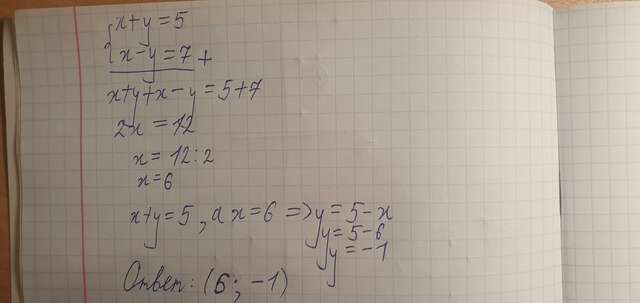 {x+y=5
{x-y=7 +
x+y+x-y=5+7
2x=12
x=12:2
x=6
x+y=5, а x=6 => y=5-x
y=5-6
y=-1
Ответ: (6; -1)